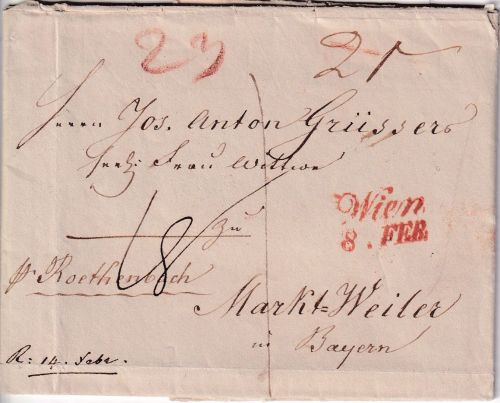 23
Herrn Jos. Anton Grüssers
Frau Wittwe
Wien
8. FEB.
zu
18
pr Roethenbach
Markt=Weiler
in Bayern
R: 14. Febr.